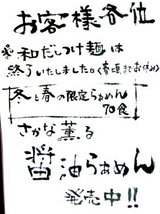 お客様各位
※和だしつけ麺は
終了いたしました。(春頃までお休み)
冬と春の限定らぁめん
70食
さかな薫る
醤油らぁめん
発売中!!